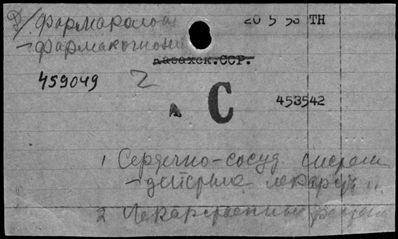 Д/ фармаколог 20 5 58 ТН
- фармакогнози
Казахск.ССР.
459049 2
А С 453542
1 Сердечно-сосуд систем
- действие лекарств
2 Лекарственные растен